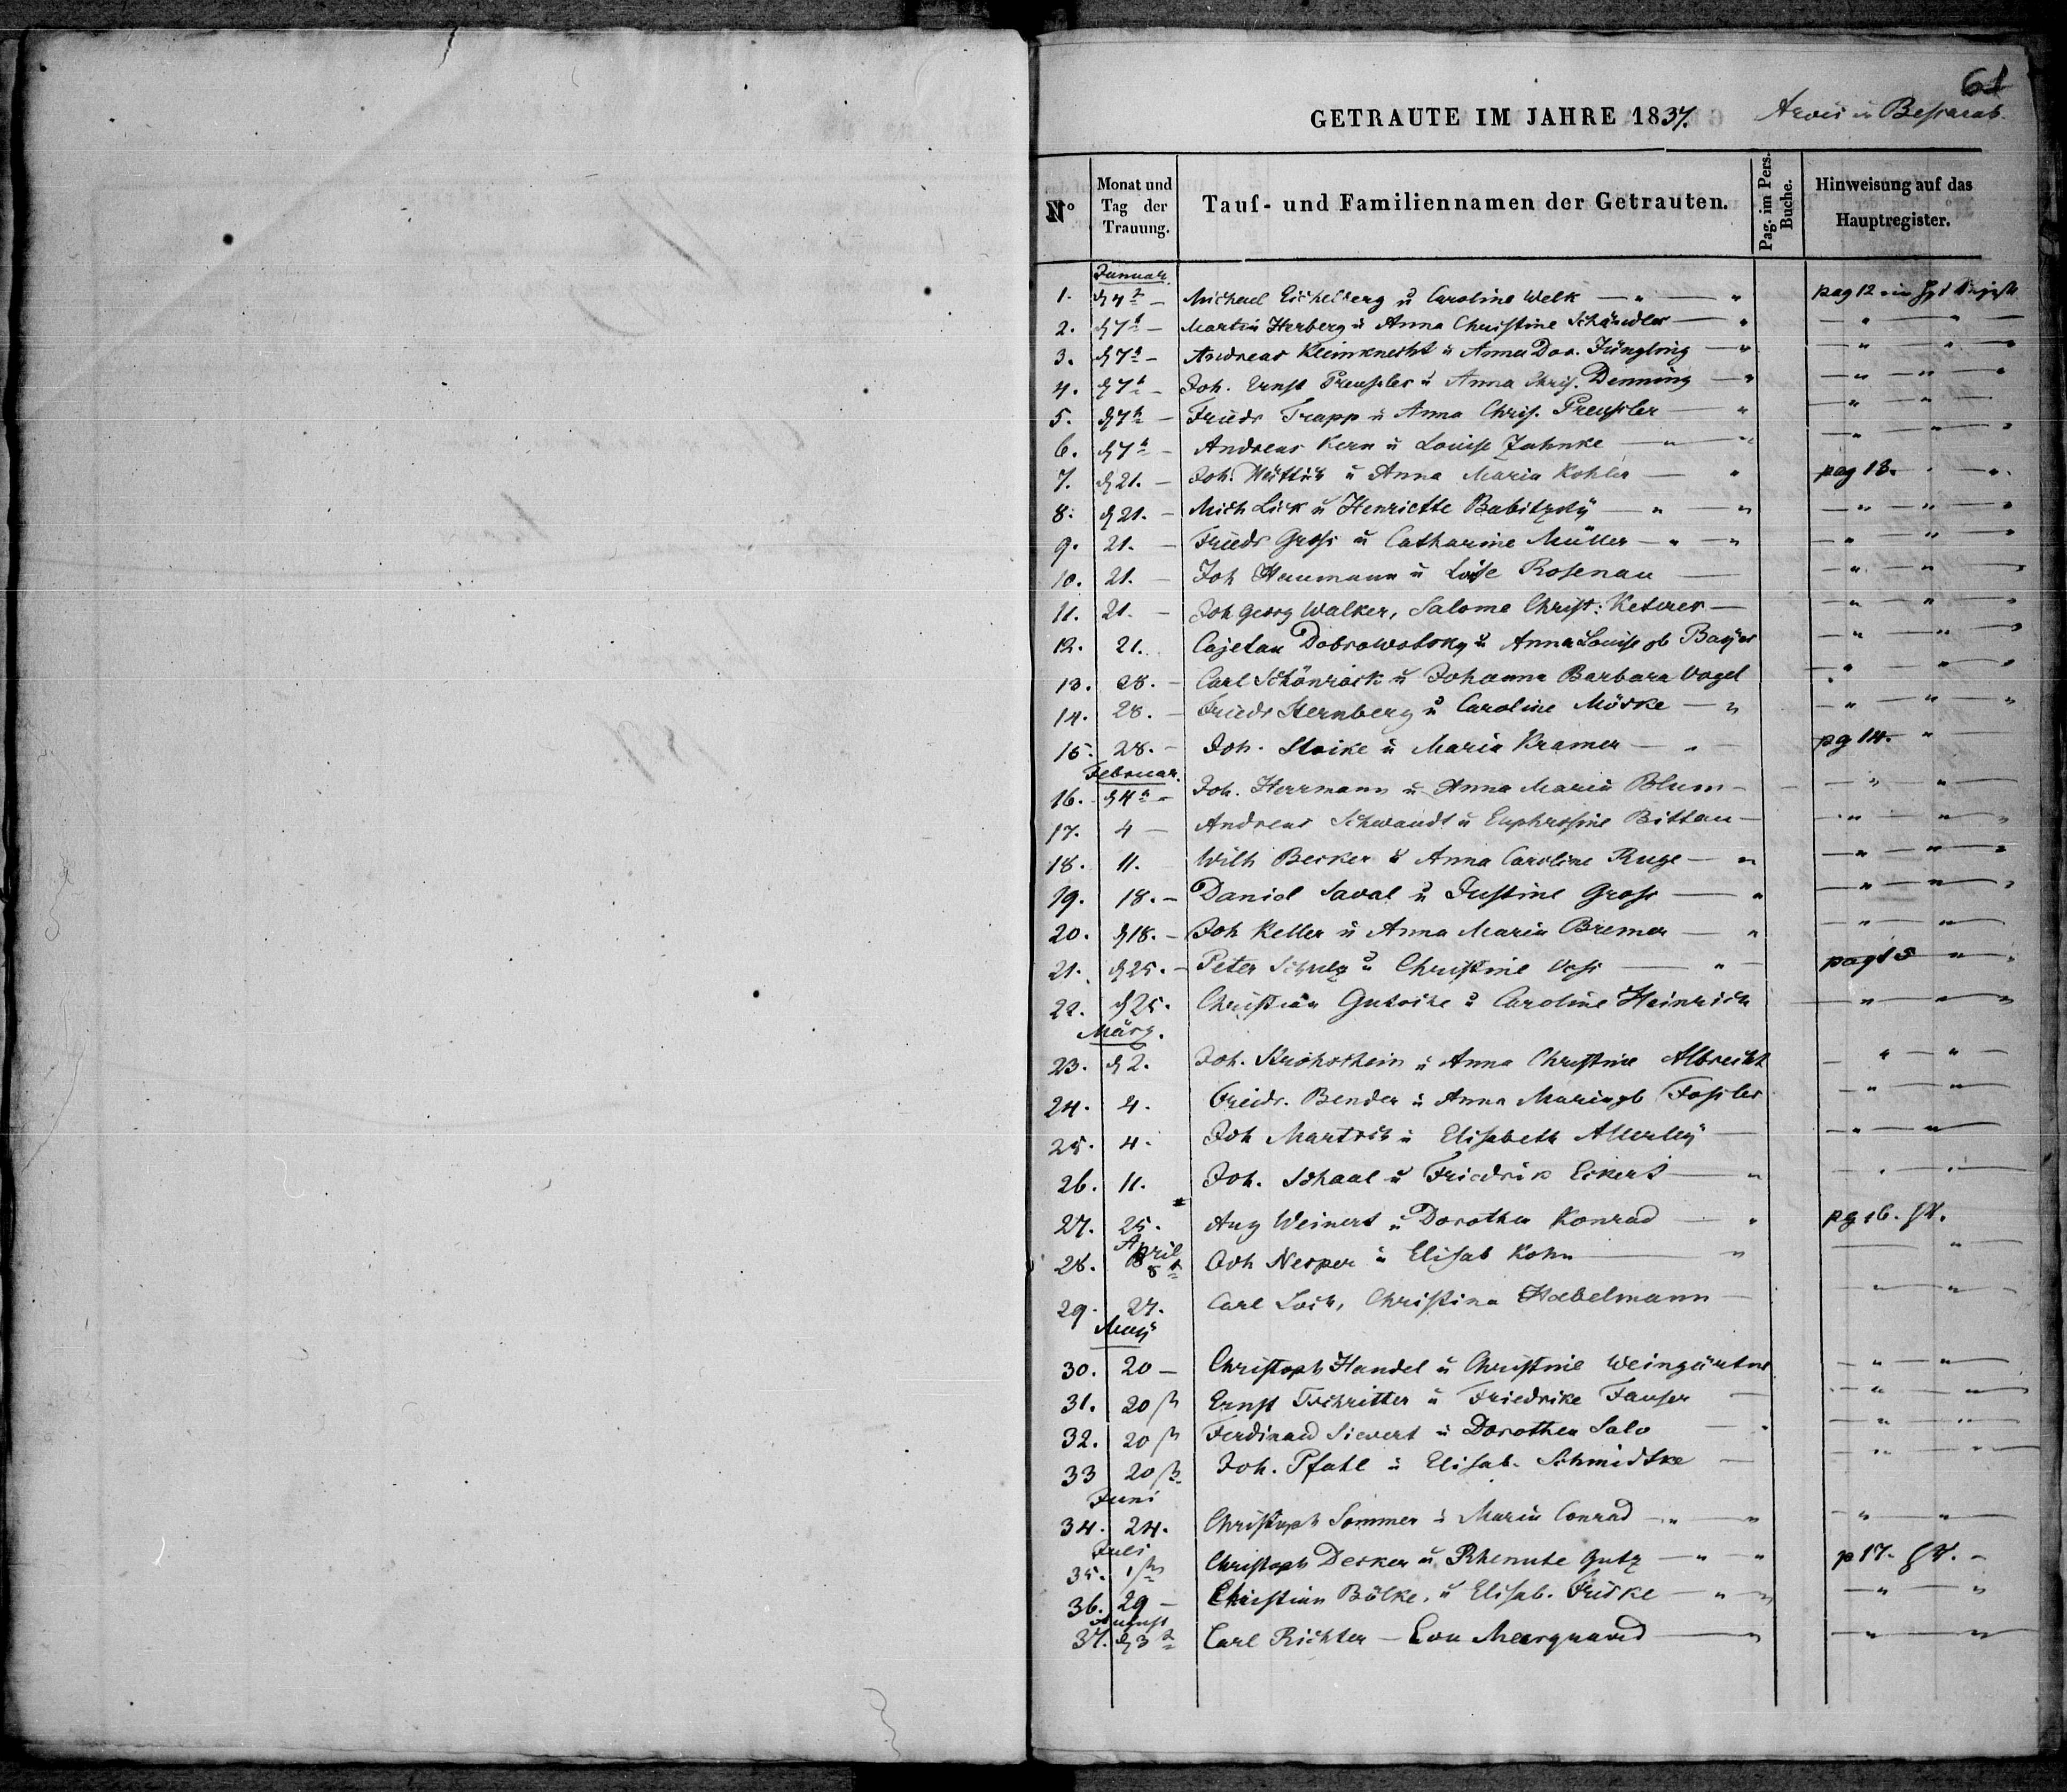 61
GETRAUTE IM JAHRE 1837. Arcis in Bessarab.
Nº
Monat und Tag der Trauung.
Tauf- und Familiennamen der Getrauten.
Pag. im Pers. Buche.
Hinweisung auf das Hauptregister.
Januar.
1. d 7t - Michael Eichelberg u Caroline Welk — " — " pag 12 im
2. d 7t - Martin Herberg u Anna Christine Schändler — " — " — " —
3. d 7t - Andreas Kleinknecht u Anna Dor. Jüngling — " — " — " —
4. d 7t - Joh. Ernst Preussler u Anna Chris. Denning — " — " — " —
5. d 7t - Friedr Trapp u Anna Chris. Preussler — " — " — " —
6. d 7t - Andreas Kern u Louise Jahnke — " — " — " — " —
7. d 21. - Joh. Wüttich u Anna Maria Kohler — " pag 13. " — "
8. d 21. - Mich Lick u Henriette Babitzky — " — " — " — " —
9. 21. - Friedr Gross u Catharine Müller — " — " — " — " —
10. 21. - Joh Haumann u Loise Rosenau — — " — " —
11. 21. - Joh Georg Walker, Salome Christ: Keterer — — " — " —
12. 21. Cajetan Dobrowolsky u Anna Louise gb Bayer — " — " —
13. 28. - Carl Schönrock u Johanna Barbara Vogel — " — " —
14. 28. - Friedr Hernberg u Caroline Möske — " — " — " —
15. 28. - Joh. Stoike u Maria Kramer — " — pg 14. "
Februar.
16. d 4t - Joh. Herrmann u Anna Maria Blum — — " — " —
17. 4 - Andreas Schwandt u Euphrosine Bittau — — " — " —
18. 11. Wilh Becker u Anna Caroline Ruge — " — " — " —
19. 18. - Daniel Saval u Justine Gross — " — " — " —
20. d 18. - Joh Keller u Anna Maria Bremer — " — " — " —
21. d 25. - Peter Schulz u Christine Voss — " — pag 15 " —
22. d 25. Christian Gutsche u Caroline Heinrich — " — " —
März.
23. d 2. Joh. Krohsthein u Anna Christine Albrecht — " — " —
24. 4. Friedr. Bender u Anna Maria gb Fossler — " — " —
25. 4. Joh Martsch u Elisabeth Allerley — — " — " —
26. 11. Joh. Schaal u Friedrik Eckert — " — " — " —
27. 25. Aug Weinert u Dorothea Konrad — " pg 16.
April
28. 8t Joh Nesper u Elisab Kohn — " — " —
29. 27. Carl Loch, Christina Habelmann — — " — " —
May
30. 20 - Christoph Handel u Christine Weingärtner — " — " —
31. 20 Ernst Tschritter u Friedrike Fauser — — " — " —
32. 20 Ferdinand Sievert u Dorothea Salo — " — " — " —
33 20 Joh. Pfahl u Elisab. Schmidtke — — " — " —
Juni
34. 24. Christoph Sommer u Maria Conrad — " — " — " — " —
Juli
35. 1 Christoph Decker u Rhenate Gutz — " — " p 17.
36. 29 - Christian Bölke, u Elisab. Fricke — " — " — " — "
August
37. d 3t Carl Richter — Eva Merquard — " — " — " —